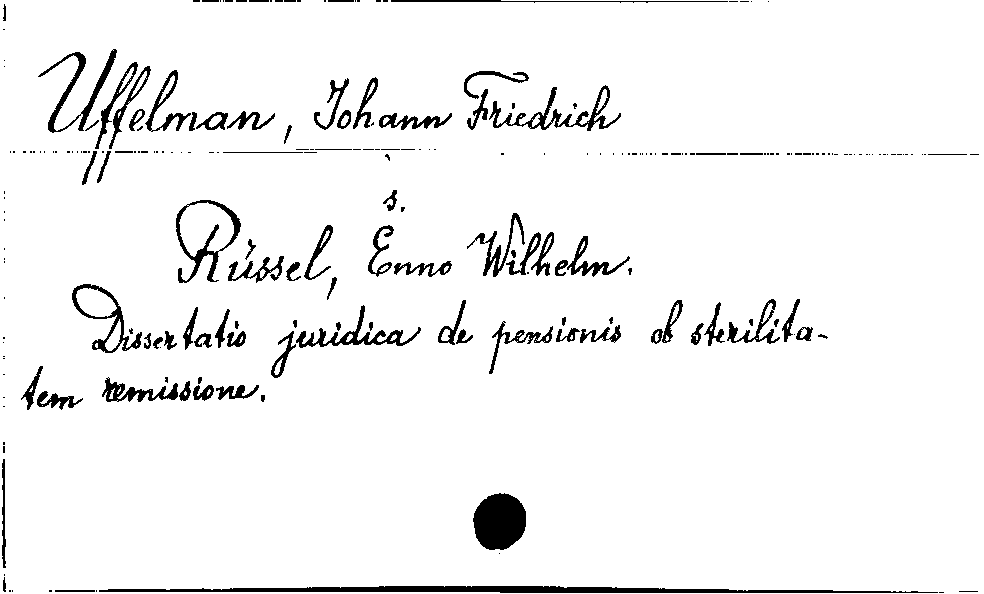 Uffelman, Johann Friedrich
s.
Rüssel, Enno Wilhelm.
Dissertatio juridica de pensionis ob sterilita-
tem remissione.